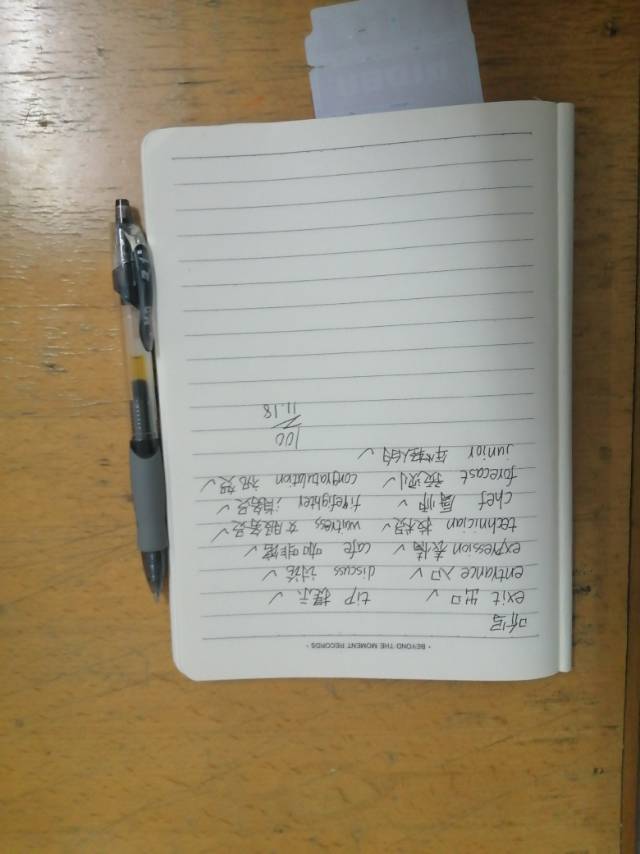 · BEYOND THE MOMENT RECORDS ·
听写
exit 出口 ✓ tip 提示 ✓
entrance 入口 ✓ discuss 讨论 ✓
expression 表情 ✓ cafe 咖啡馆 ✓
technician 技术员 ✓ waitress 女服务员 ✓
chef 厨师 ✓ firefighter 消防员 ✓
forecast 预测 ✓ congratulation 祝贺 ✓
junior 年轻人的 ✓
100
11.18